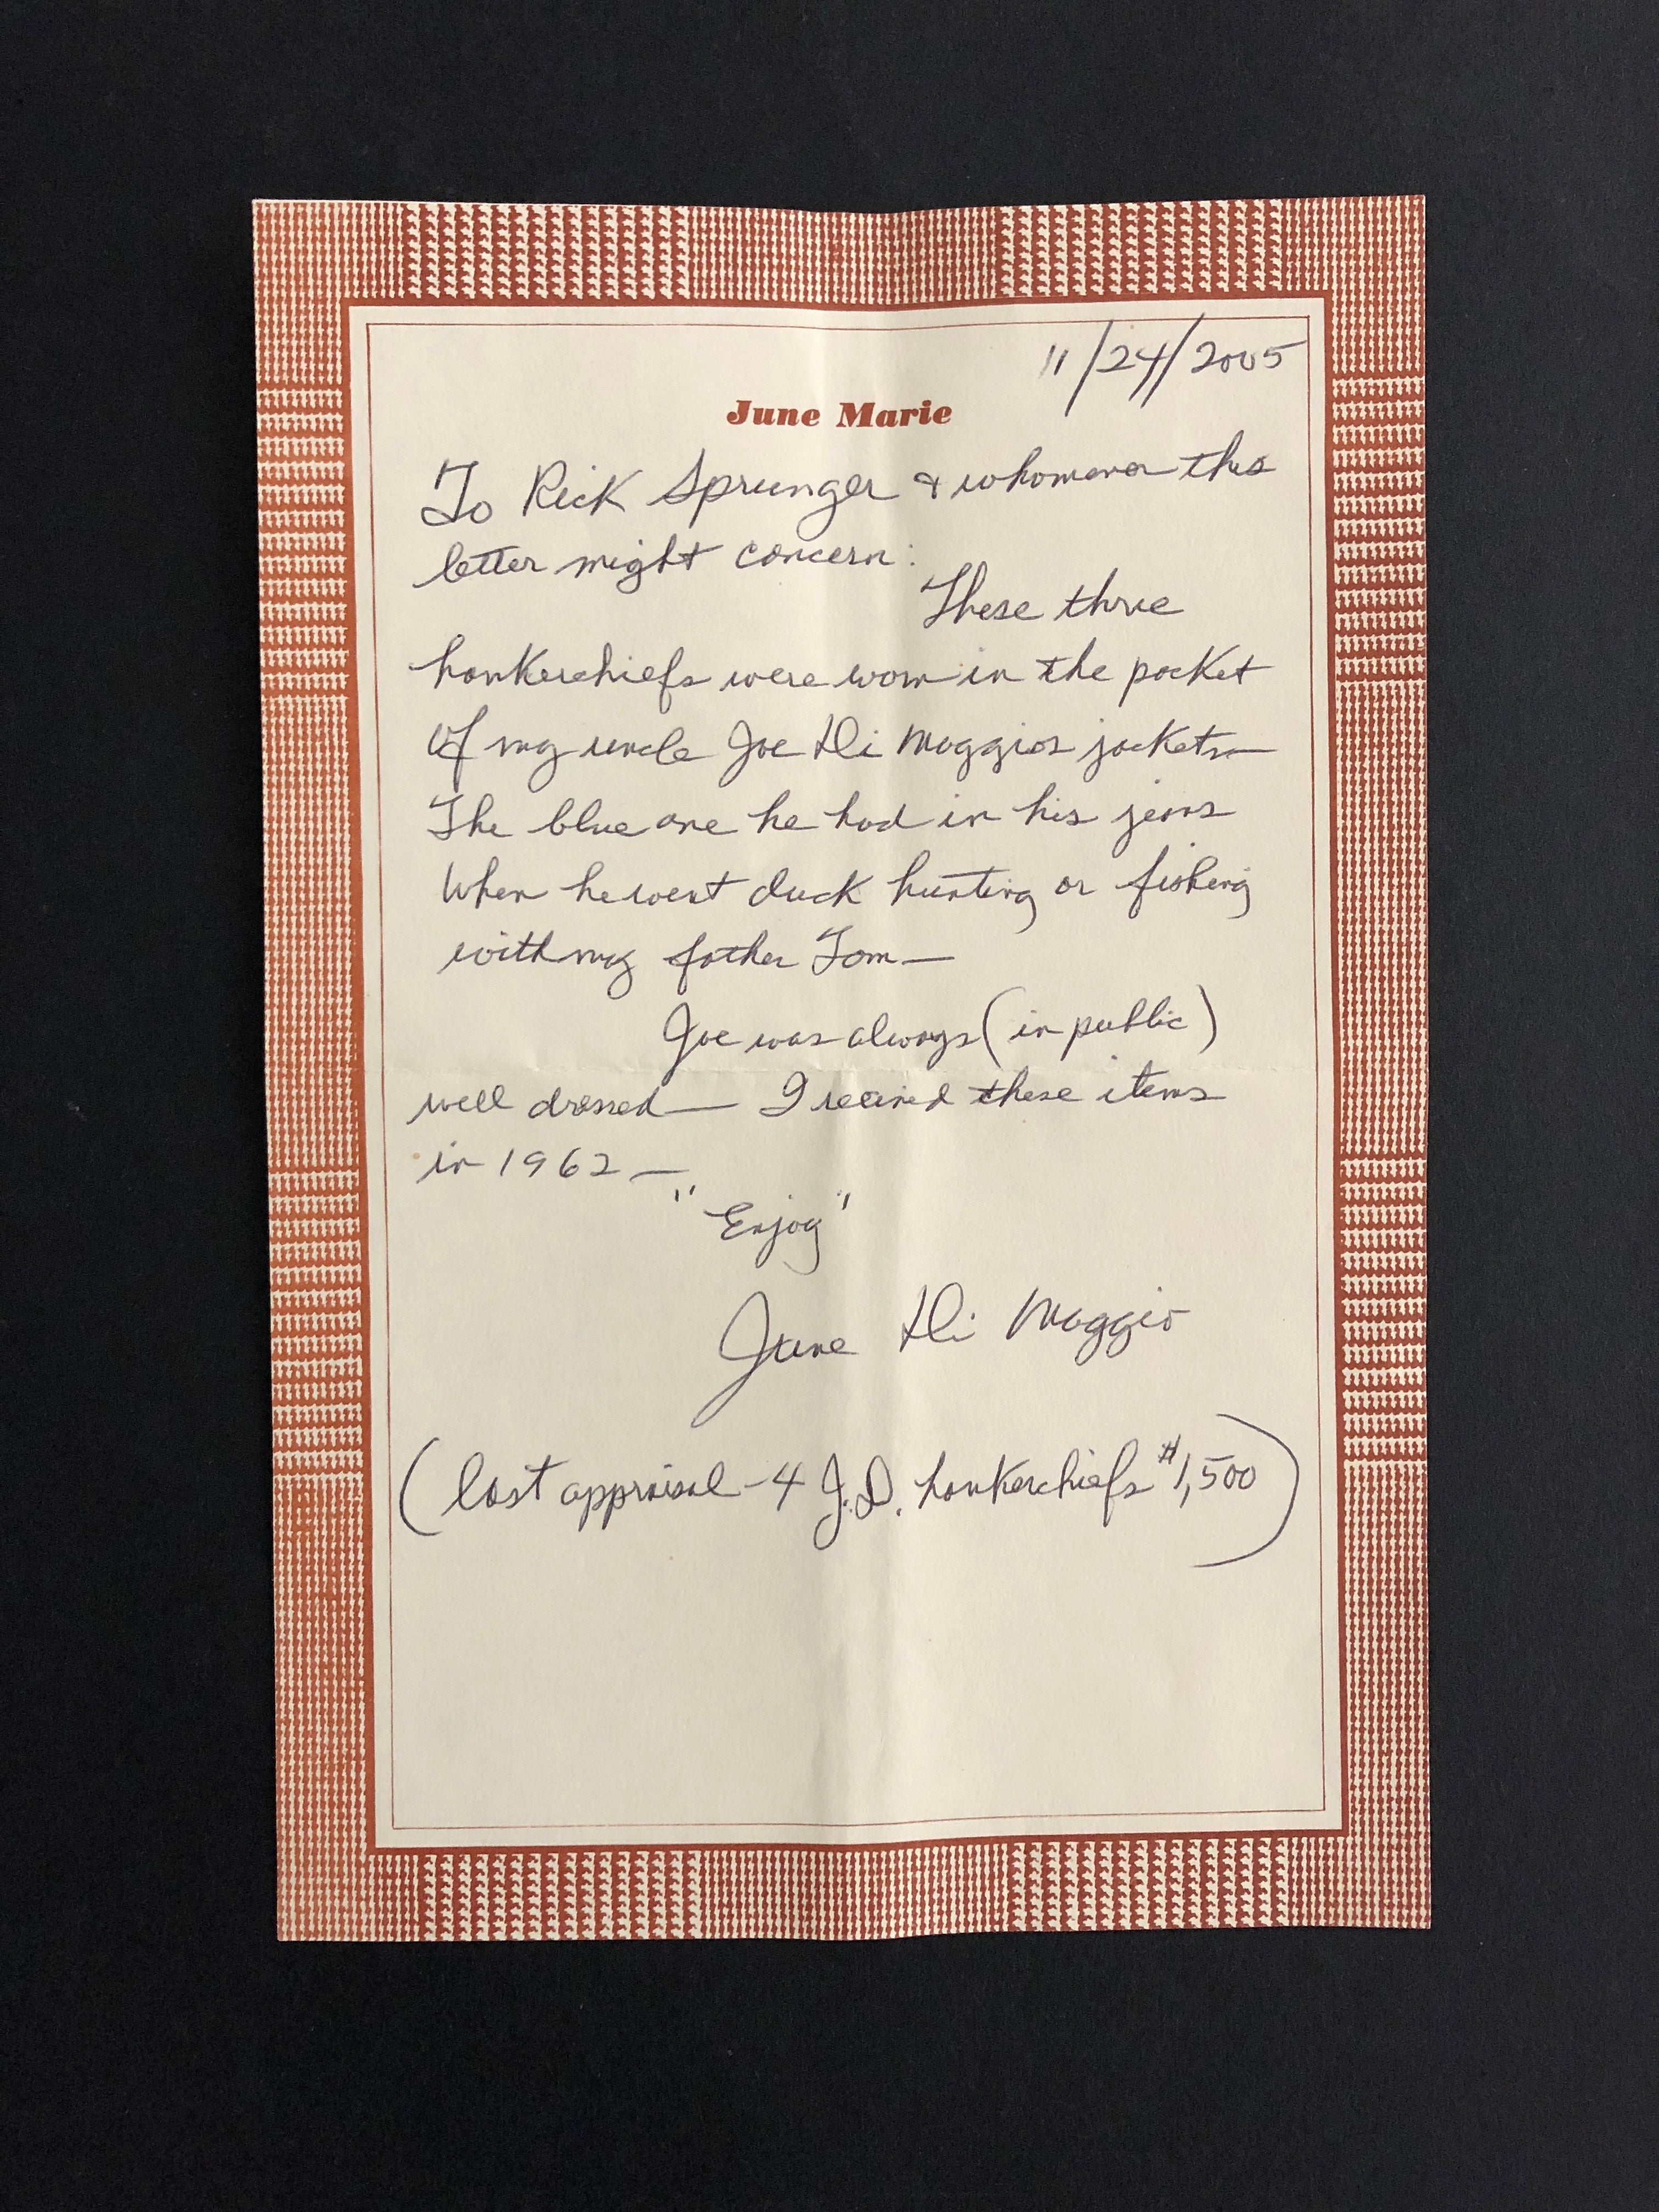 11/24/2005
June Marie
To Rick Sprunger & whomever this
letter might concern:
These three
hankerchiefs were worn in the pocket
of my uncle Joe Di Maggios jackets—
The blue one he had in his jeans
when he went duck hunting or fishing
with my father Tom—
Joe was always (in public)
well dressed— I recived these items
in 1962—
"Enjoy"
June Di Maggio
(last appraisal - 4 J.D. hankerchiefs $1,500)